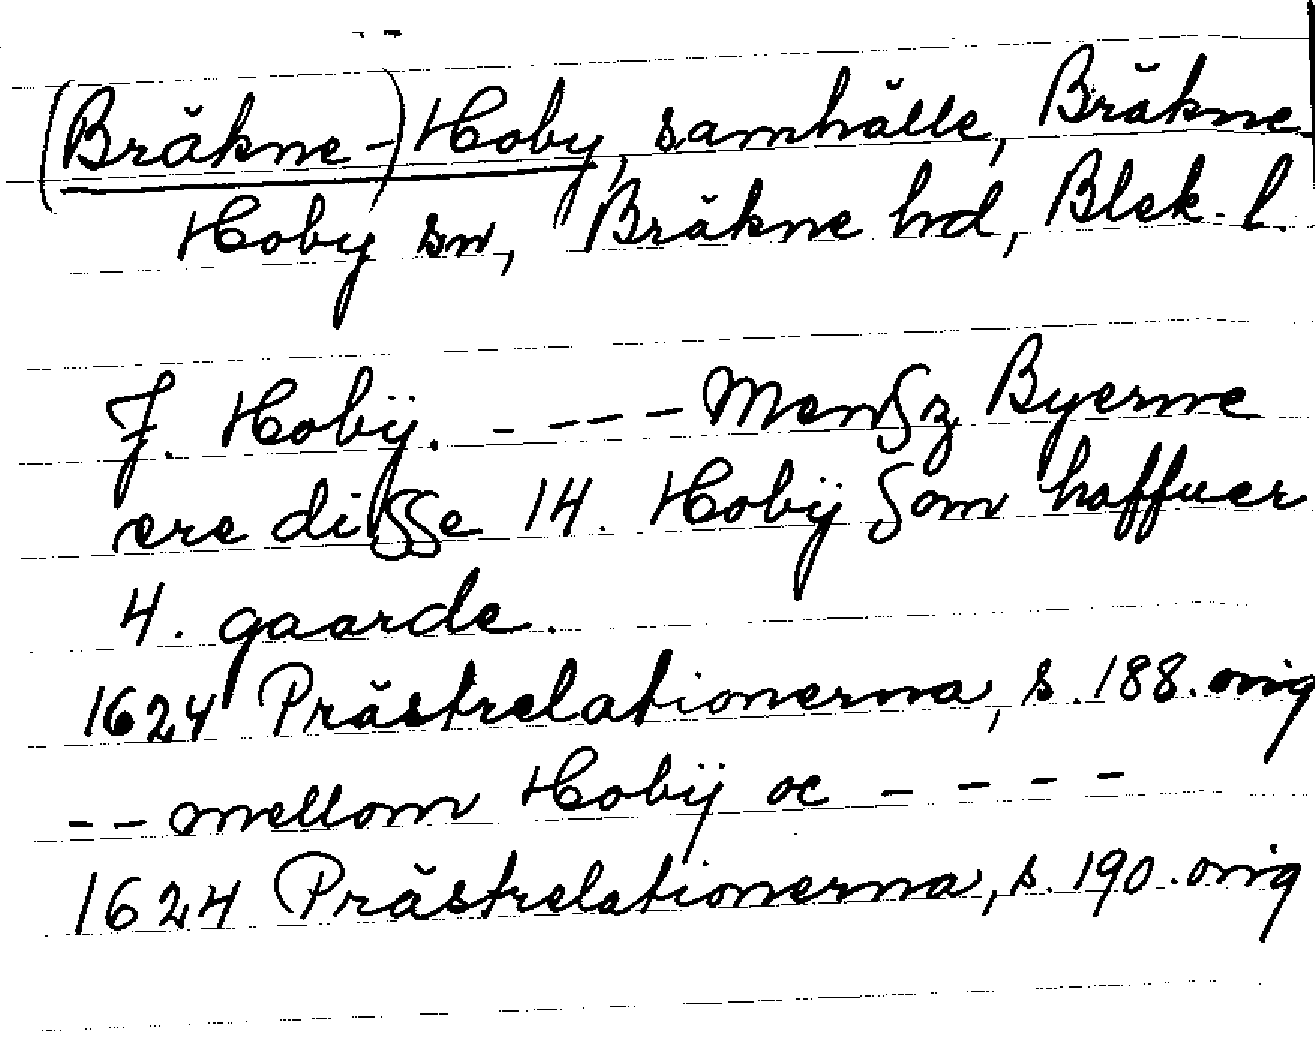 (Bräkne-)Hoby, samhälle, Bräkne
Hoby sn, Bräkne hd, Blek. l.
J. Hobÿ. - --- Mensz Byerne
ere disse 14. Hobÿ som haffuer
4. gaarde.
1624 Prästrelationerna, s. 188. orig
-- mellom Hobÿ oc - - - -
1624 Prästrelationerna, s. 190. orig